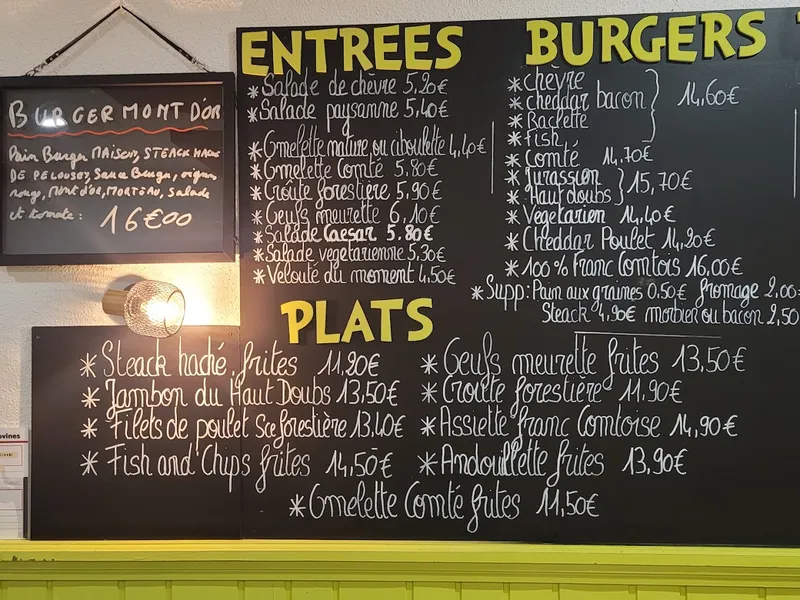 BURGER MONT D'OR
Pain Burger MAISON, STEACK HACHE
DE PELOUSEY, Sauce Burger, oignon
rouge, MONT d'OR, MORTEAU, Salade
et tomate : 16€00
ENTREES
*Salade de chèvre 5,20€
*Salade paysanne 5,40€
*Omelette nature ou ciboulette 4,40€
*Omelette Comté 5.80€
*Croûte forestière 5,90€
*Oeufs meurette 6,10€
*Salade Caesar 5.80€
*Salade végétarienne 5,30€
*Velouté du moment 4,50€
BURGERS
*Chèvre
*cheddar bacon } 14,60€
*Raclette
*Fish
*Comté 14,70€
*Jurassien
*Haut doubs } 15,70€
*Végétarien 14,40€
*Cheddar Poulet 14,20€
*100% Franc Comtois 16,00€
*Supp: Pain aux graines 0.50€ fromage 2,00
Steack 4.90€ morbier ou bacon 2,50
PLATS
*Steack haché, frites 11.20€
*Jambon du Haut Doubs 13,50€
*Filets de poulet Sce forestière 13,40€
*Fish and Chips frites 14,50€
*Oeufs meurette frites 13,50€
*Croûte forestière 11.90€
*Assiette franc Comtoise 14,90€
*Andouillette frites 13,90€
*Omelette Comté frites 11,50€